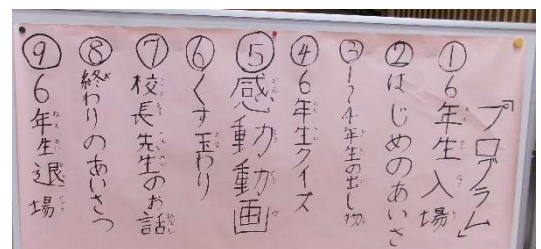 「プログラム」
①6年生入場
②はじめのあいさ
③1〜4年生の出し物
④6年生クイズ
⑤感動動画
⑥くす玉わり
⑦校長先生のお話
⑧終わりのあいさつ
⑨6年生退場